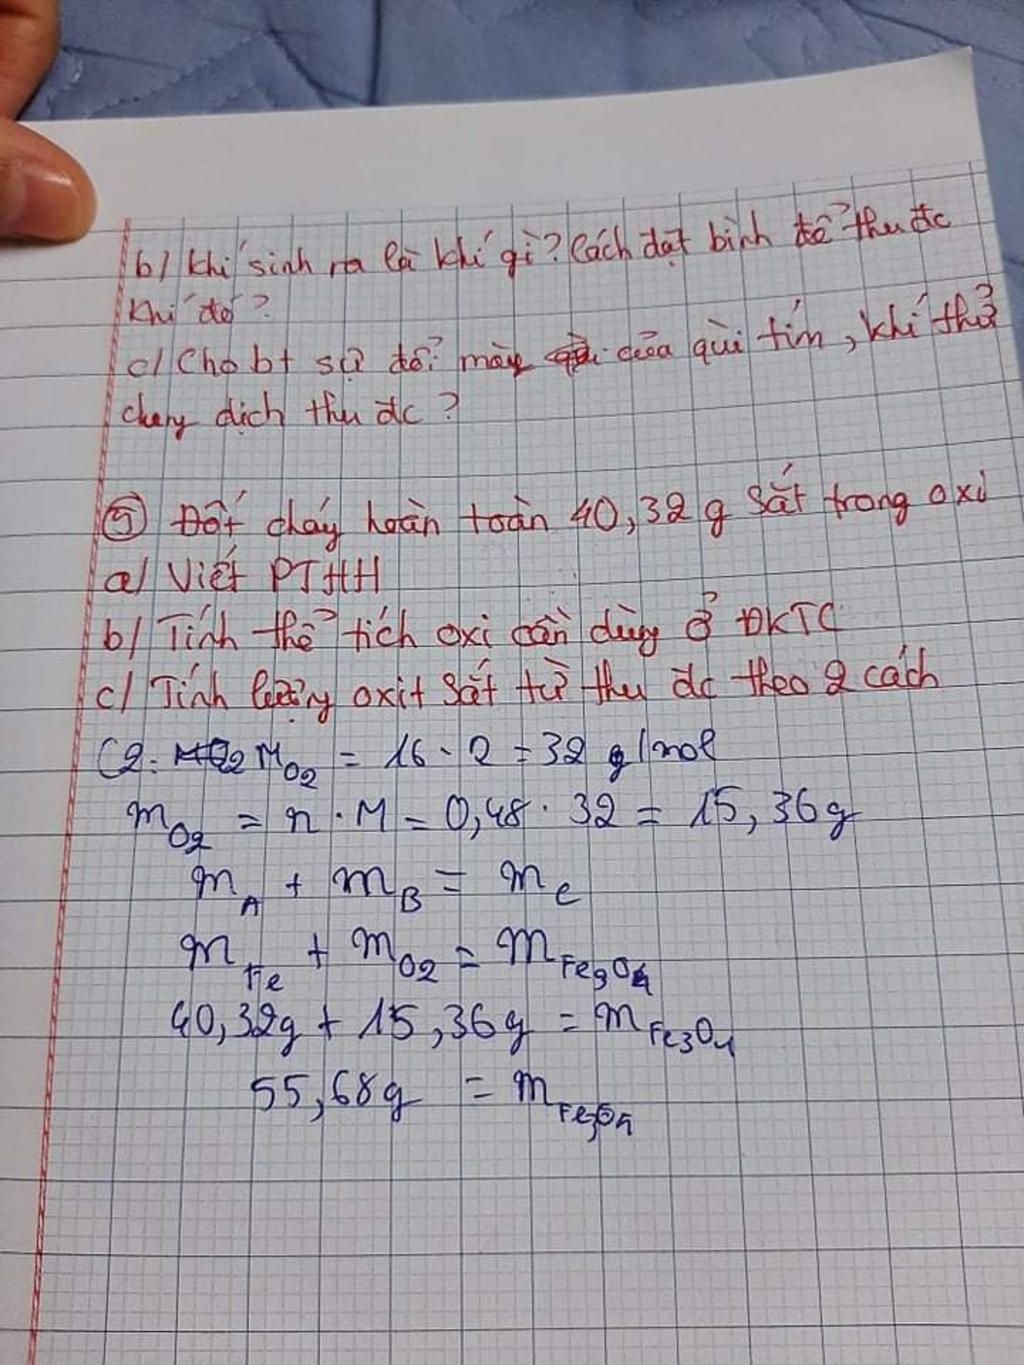 b/ Khí sinh ra là khí gì? Cách đặt bình để thu đc
khí đó?
c/ Cho bt sự đổi màu của quì tím, khí thử
dung dịch thu đc?
⑤ Đốt cháy hoàn toàn 40,32g Sắt trong oxi
a/ Viết PTHH
b/ Tính thể tích oxi cần dùng ở ĐKTC
c/ Tính lượng oxit Sắt từ thu đc theo 2 cách
C2: M_O2 = 16 . 2 = 32 g/mol
m_O2 = n . M = 0,48 . 32 = 15,36g
m_A + m_B = m_C
m_Fe + m_O2 = m_Fe3O4
40,32g + 15,36g = m_Fe3O4
55,68g = m_Fe3O4